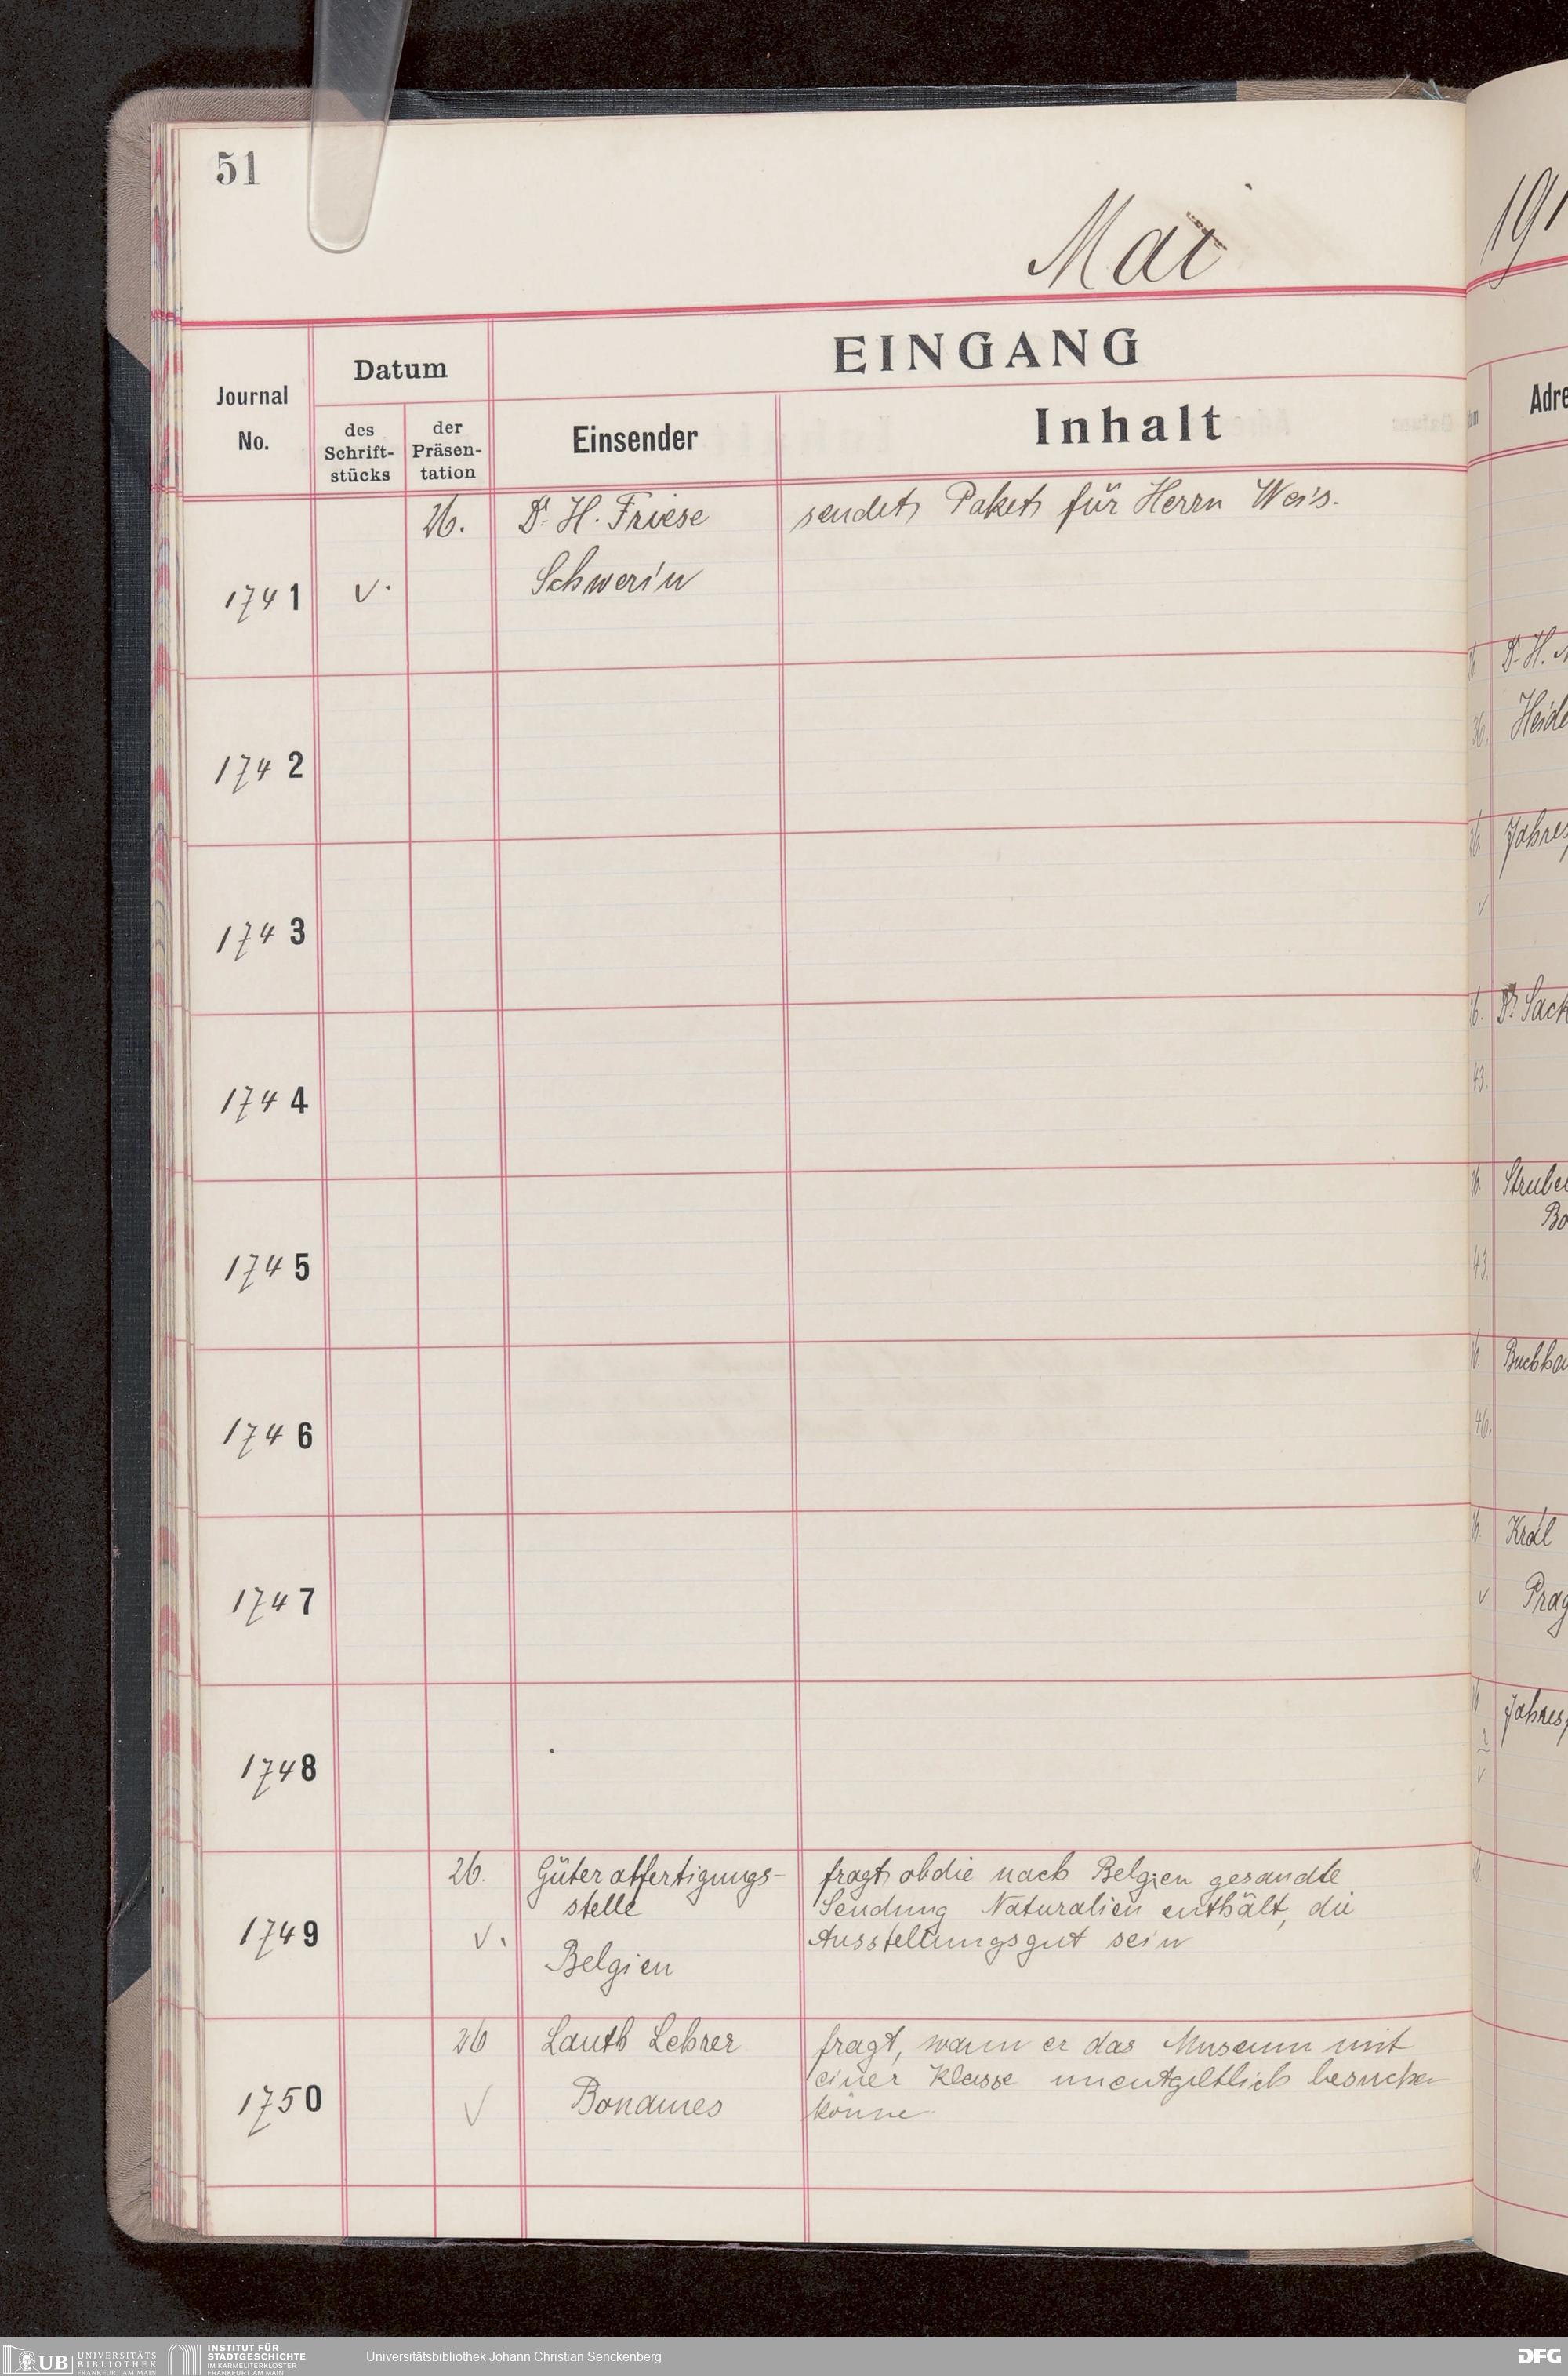 51
Mai
191
EINGANG
Journal
No.
Datum
des
Schrift-
stücks
der
Präsen-
tation
Einsender
Inhalt
Adre
1741 v. 26. Dr. H. Friese sendet Paket für Herrn Weis.
Schwerin
1742
1743
1744
1745
1746
1747
1748
1749 26. Güterabfertigungs-
stelle
v. Belgien
fragt ob die nach Belgien gesandte
Sendung Naturalien enthält, die
Ausstellungsgut sein
1750 26 Lauth Lehrer
v Bonames
fragt, wann er das Museum mit
einer Klasse unentgeltlich besuchen
könne.
Dr. H.
Heide
36.
Jahres
v
Dr. Sack
43.
Bo
43.
46.
Kral
v Prag
Jahres
v
UB UNIVERSITÄTS
BIBLIOTHEK
FRANKFURT AM MAIN
INSTITUT FÜR
STADTGESCHICHTE
IM KARMELITERKLOSTER
FRANKFURT AM MAIN
Universitätsbibliothek Johann Christian Senckenberg
DFG